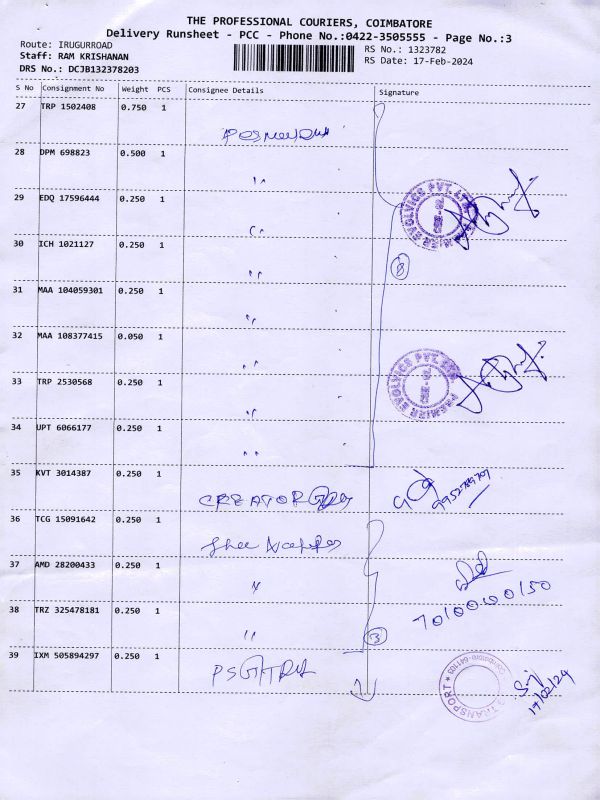 THE PROFESSIONAL COURIERS, COIMBATORE
Delivery Runsheet - PCC - Phone No.:0422-3505555 - Page No.:3
Route: IRUGURROAD
RS No.: 1323782
Staff: RAM KRISHANAN
RS Date: 17-Feb-2024
DRS No.: DCJB132378203
S No Consignment No Weight PCS Consignee Details Signature
27 TRP 1502408 0.750 1
28 DPM 698823 0.500 1
"
29 EDQ 17596444 0.250 1
"
30 ICH 1021127 0.250 1
"
8
31 MAA 104059301 0.250 1
"
32 MAA 108377415 0.050 1
"
33 TRP 2530568 0.250 1
"
PREMIER EVOLVICS PVT. LTD.
34 UPT 6066177 0.250 1
"
35 KVT 3014387 0.250 1
CREATOR
36 TCG 15091642 0.250 1
Shree
37 AMD 28200433 0.250 1
"
38 TRZ 325478181 0.250 1
"
3
39 IXM 505894297 0.250 1
1
TRANSPORT * Coimbatore-641103
17/02/24